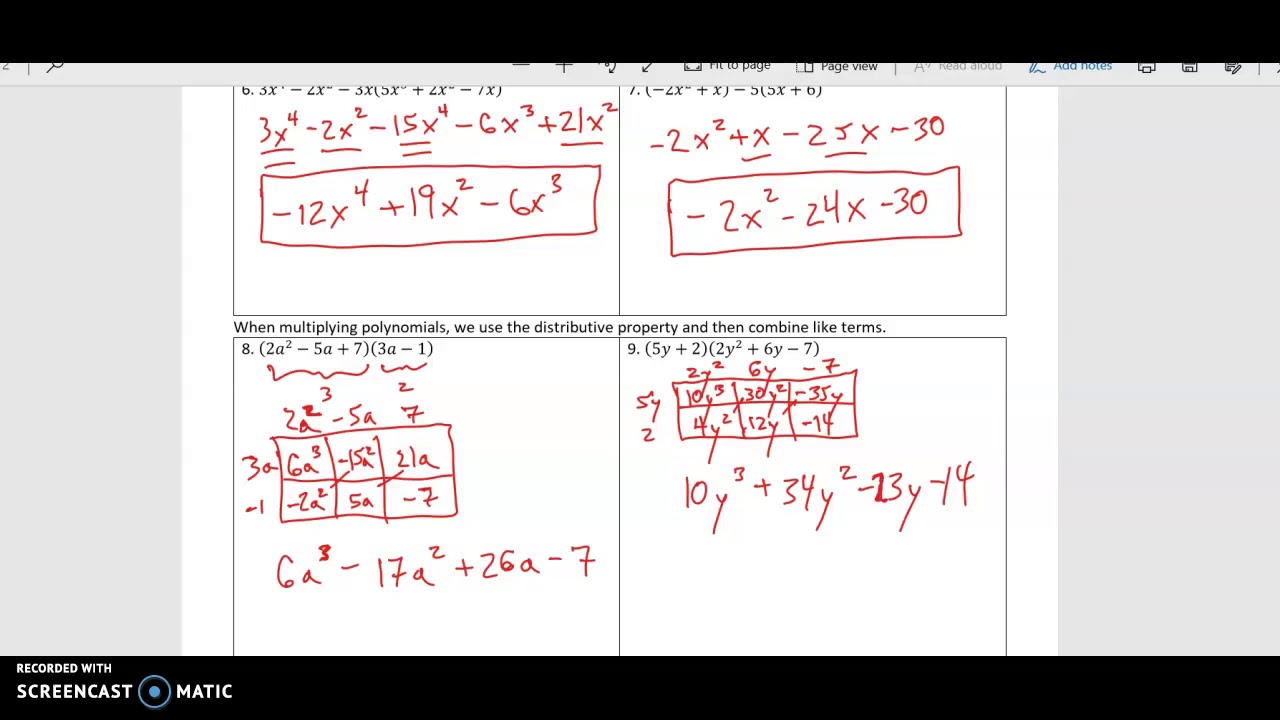 2
Fit to page
Page view
Read aloud
Add notes
6. 3x⁴ − 2x² − 3x(5x³ + 2x² − 7x)
3x⁴ - 2x² - 15x⁴ - 6x³ + 21x²
-12x⁴ + 19x² - 6x³
7. (−2x² + x) − 5(5x + 6)
-2x² + x - 25x - 30
-2x² - 24x - 30
When multiplying polynomials, we use the distributive property and then combine like terms.
8. (2a² − 5a + 7)(3a − 1)
3 2
2a² -5a 7
3a 6a³ -15a² 21a
-1 -2a² 5a -7
6a³ - 17a² + 26a - 7
9. (5y + 2)(2y² + 6y − 7)
2y² 6y -7
5y 10y³ 30y² -35y
2 4y² 12y -14
10y³ + 34y² - 23y - 14
RECORDED WITH
SCREENCAST MATIC